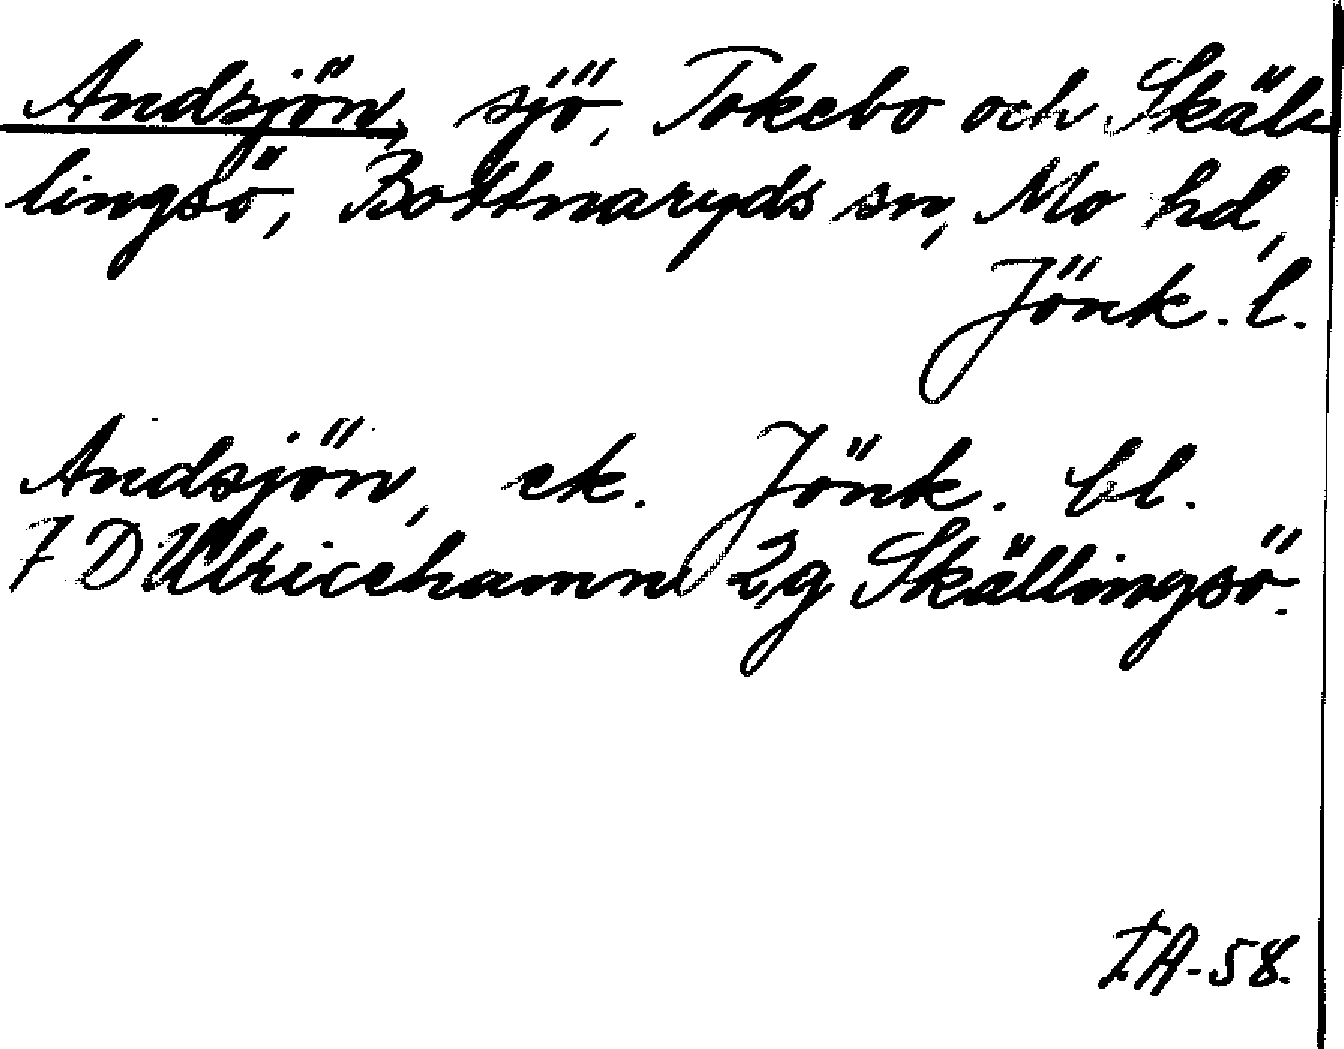 Andsjön, sjö, Tokebo och Skäl-
lingsö, Bottnaryds sn, Mo hd,
Jönk. l.
Andsjön, ek. Jönk. bl.
7 D Ulricehamn 2g Skällingsö.
IA-58.